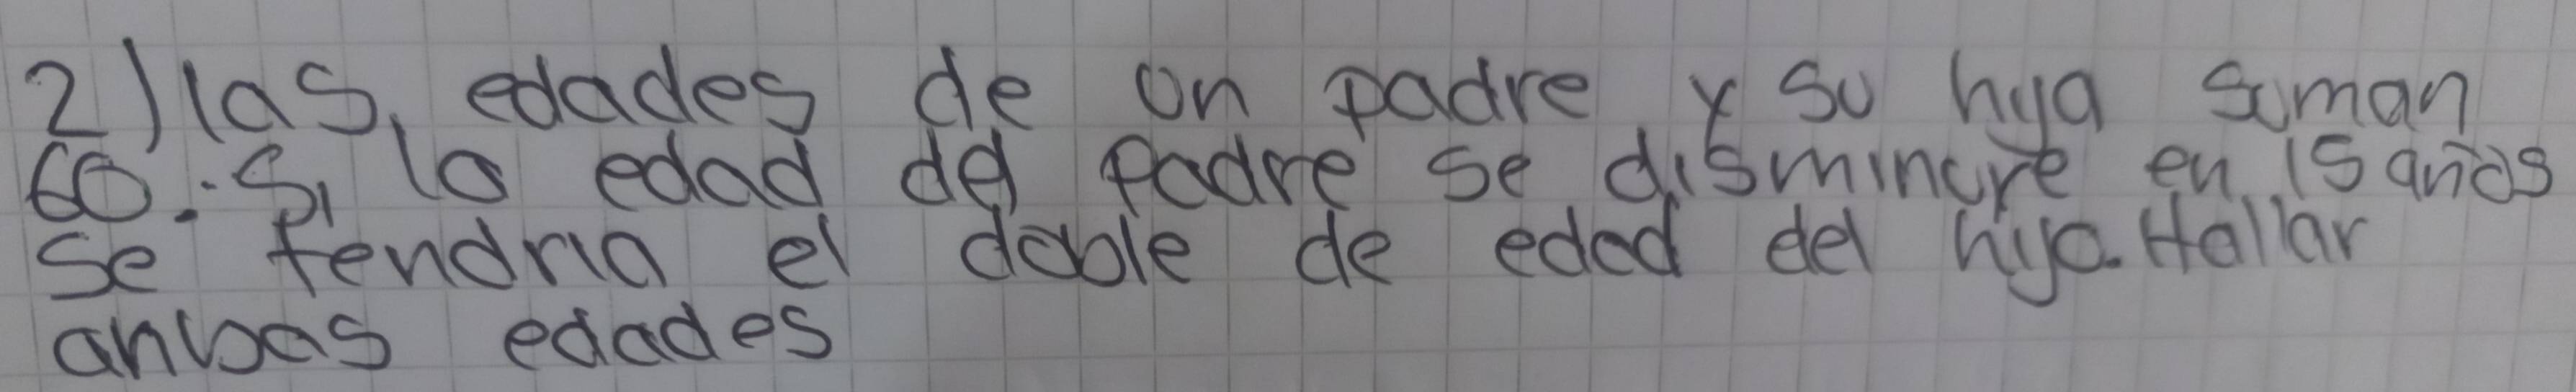 2) las, edades de un padre y su hija suman
60.. Si la edad del padre se disminuye en 15 años
se tendria el doble de edad del hijo. Hallar
anbas edades